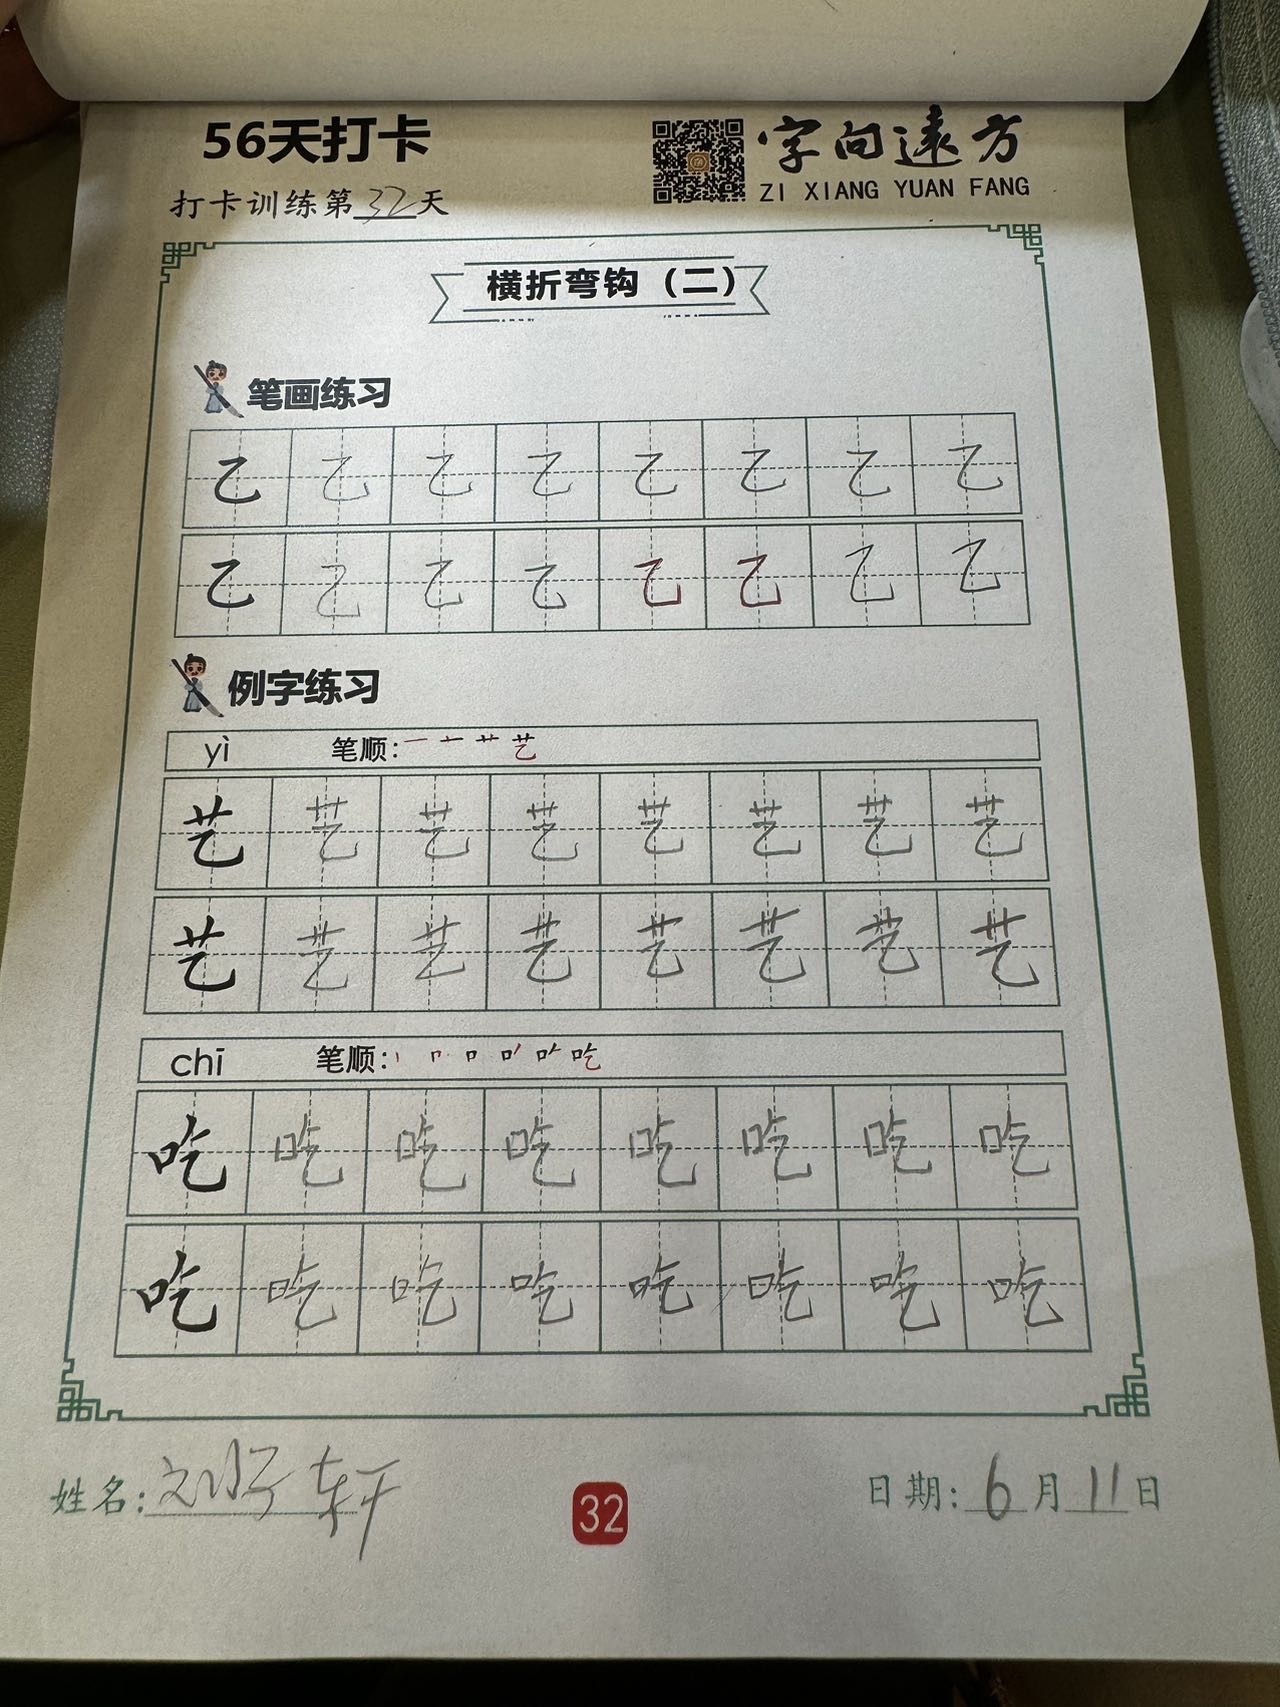 56天打卡
字向遠方
ZI XIANG YUAN FANG
打卡训练第32天
横折弯钩（二）
笔画练习
乙 乙 乙 乙 乙 乙 乙 乙
乙 乙 乙 乙 乙 乙 乙 乙
例字练习
yì 笔顺: 一 十 艹 艺
艺 艺 艺 艺 艺 艺 艺 艺
艺 艺 艺 艺 艺 艺 艺 艺
chī 笔顺: 丨 𠃍 口 吃
吃 吃 吃 吃 吃 吃 吃 吃
吃 吃 吃 吃 吃 吃 吃 吃
姓名: 刘 轩
32
日期: 6月11日